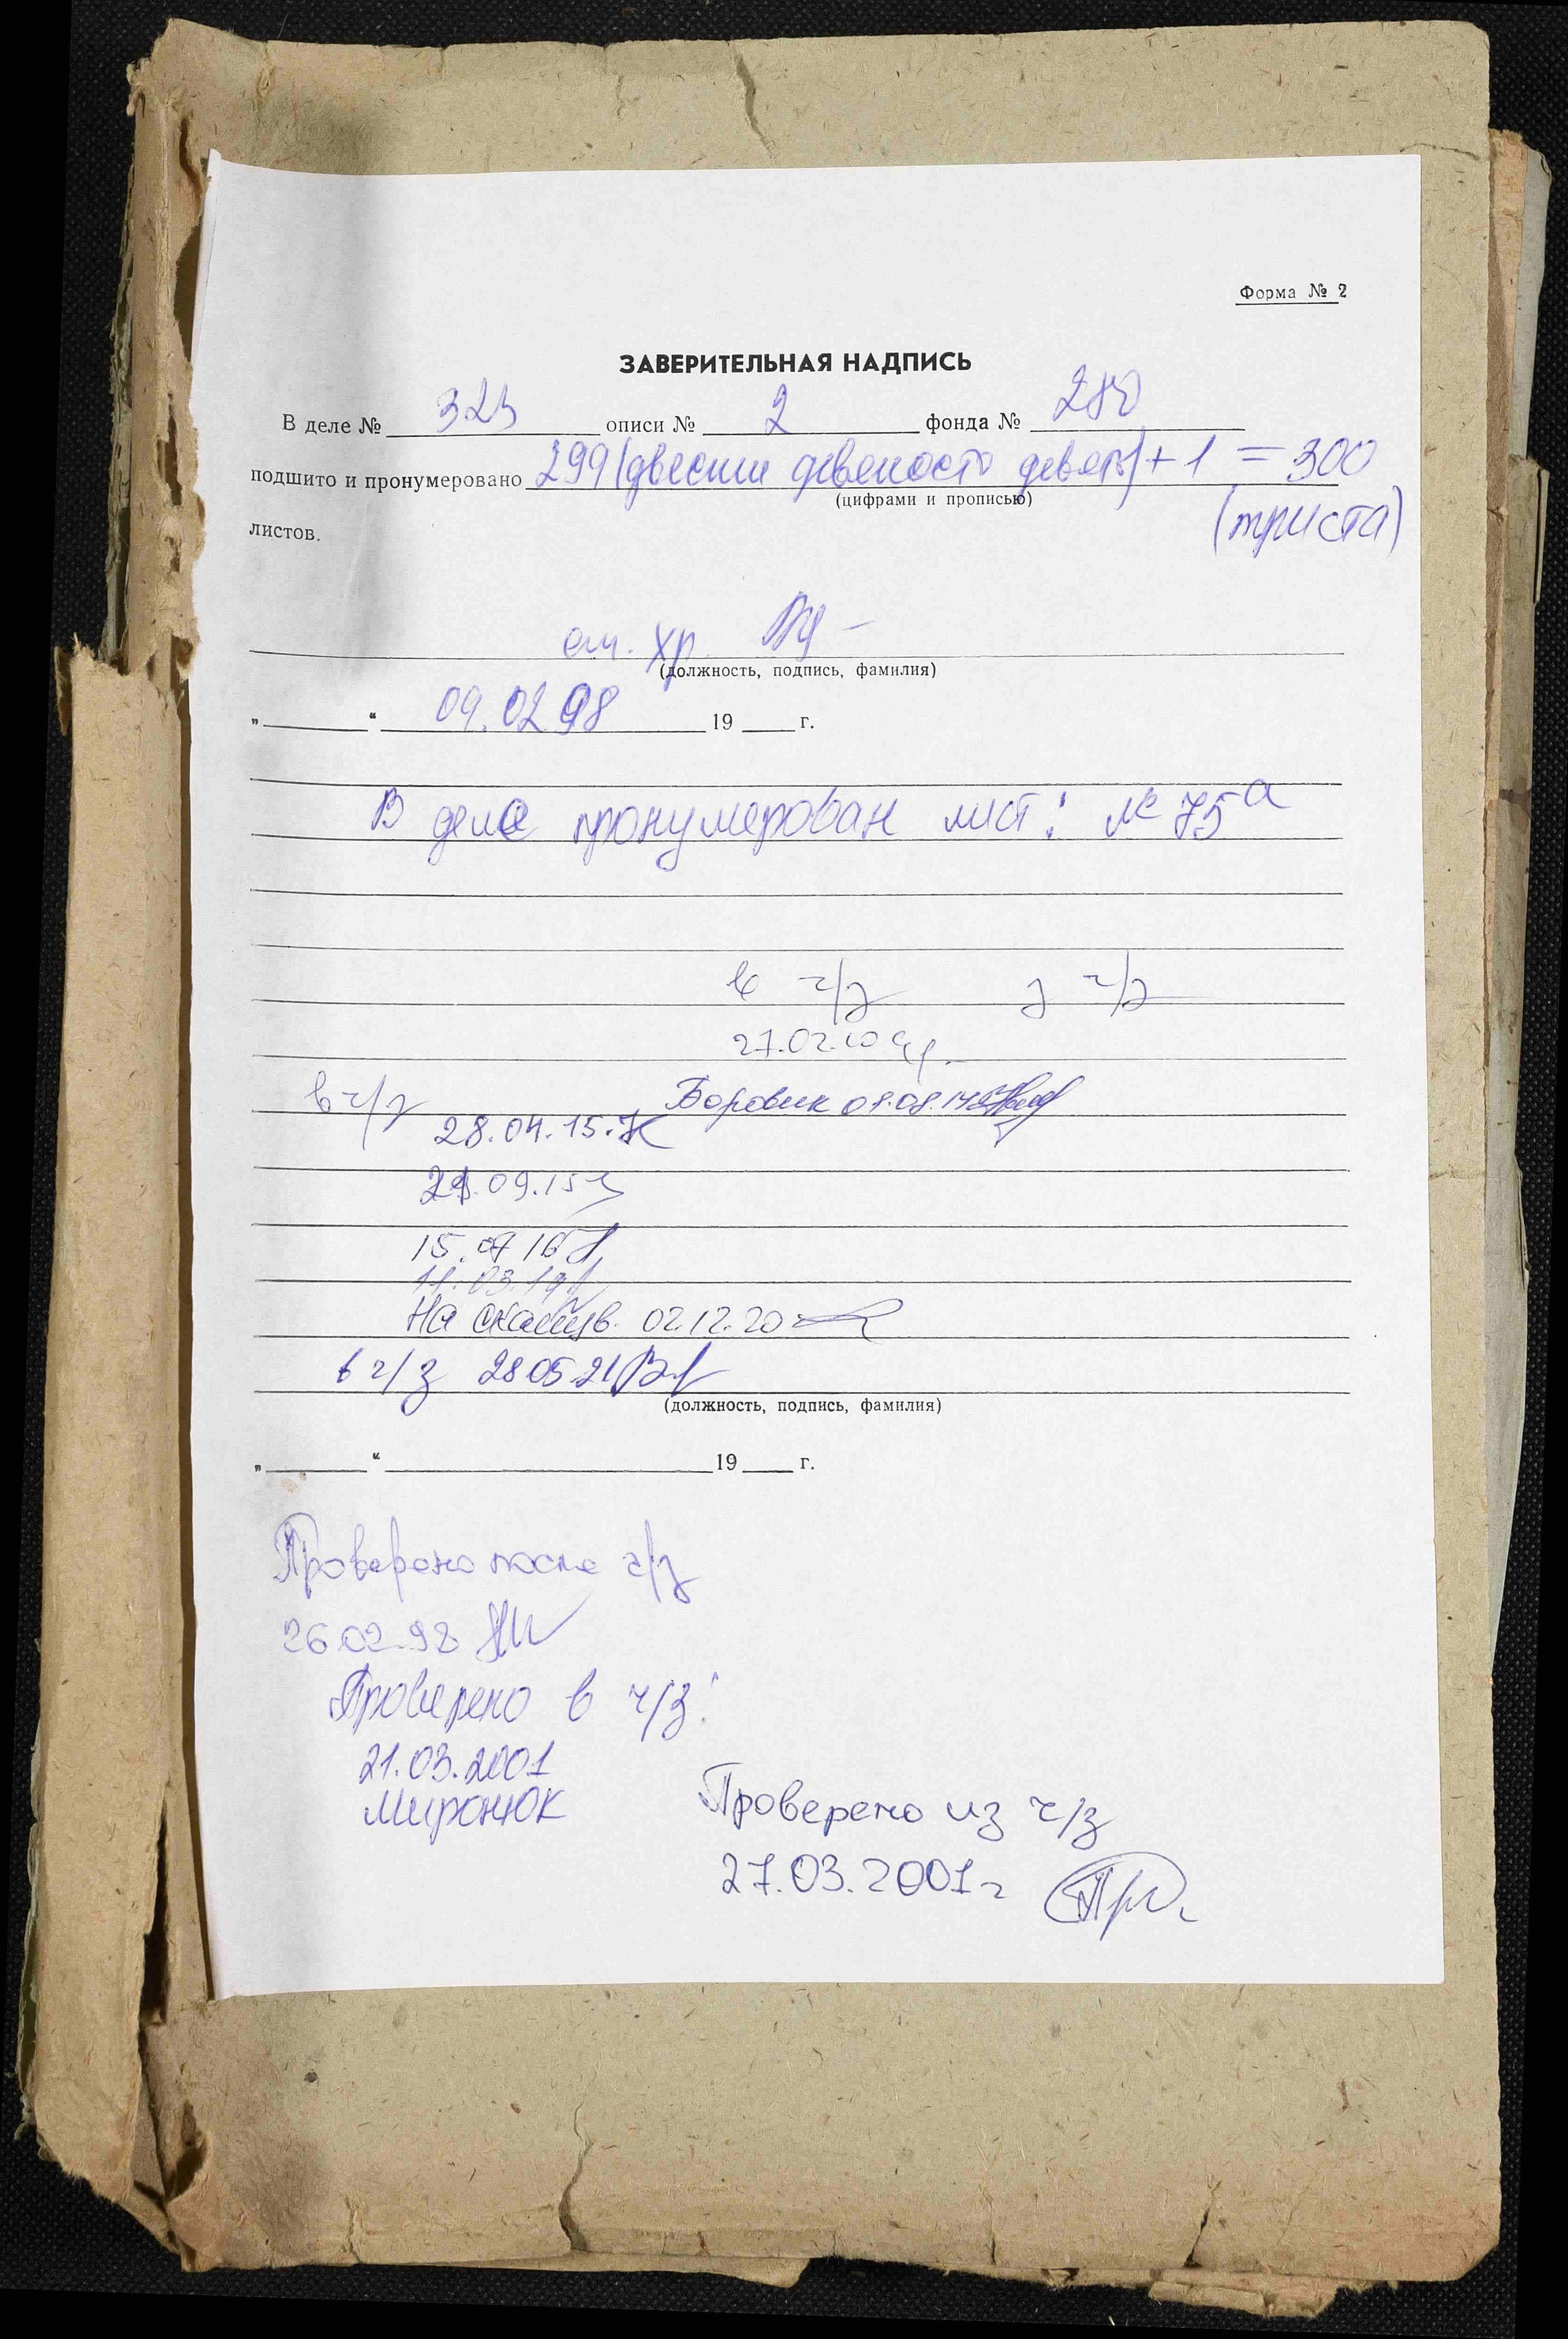 Форма № 2
ЗАВЕРИТЕЛЬНАЯ НАДПИСЬ
В деле № 323 описи № 2 фонда № 280
подшито и пронумеровано 299 (двести девяносто девять) + 1 = 300
(цифрами и прописью)
листов. (триста)
ст. хр.
(должность, подпись, фамилия)
„ “ 09.02.98 19 г.
В деле пронумерован лист: № 75а
в ч/з з ч/з
27.02.
в ч/з Боровик
28.04.15.
09.15
15.07 16
11.03.19
На сканув. 02.12.20
в ч/з 28 05 21
(должность, подпись, фамилия)
„ “ 19 г.
Проверено после ч/з
26.02.98
Проверено в ч/з:
21.03.2001
Миронюк
Проверено из ч/з
27.03.2001г